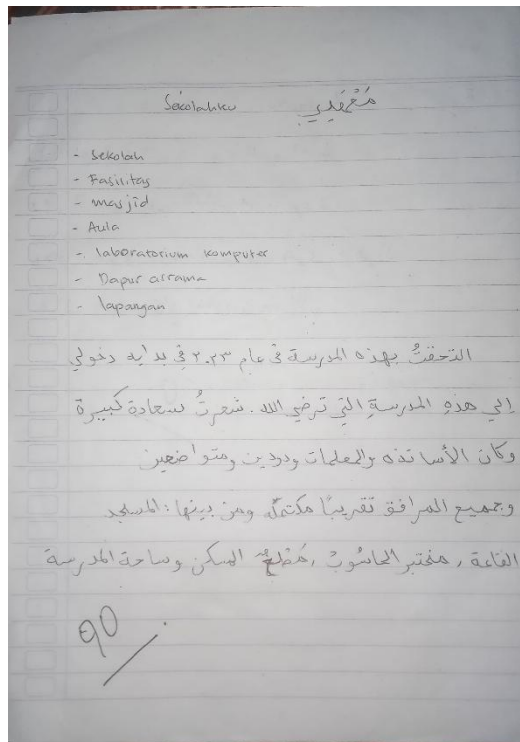 Sekolahku مَعْهَدِيي
- Sekolah
- Fasilitas
- masjid
- Aula
- laboratorium komputer
- Dapur asrama
- lapangan
التحقتُ بهذه المدرسة في عام ٢٠٢٣ في بدايه دخولي
إلي هذهِ المدرسةِ التي ترضي الله. شعرتُ بسعادة كبيرة
وكان الأساتذه والمعلمات ودودين ومتواضعين
وجميع المرافق تقريبًا مكتمله ومن بينها: المسجد
القاعة, مختبر الحاسُوبْ, مَطْبَخٌ السكن وساحة المدرسة
90